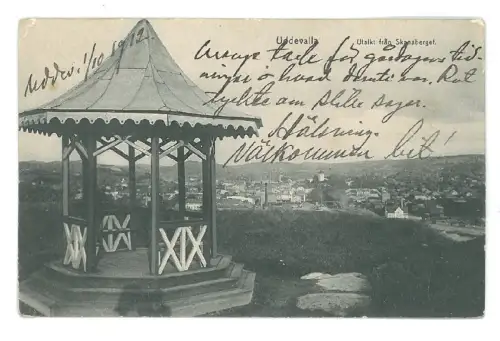 Uddevalla. Utsikt från Skansberget.
Uddev. 1/10 1912
Mange takk för gårdagens tid-
ningar o hvad dermti var. Rut
tyckte om slike sager.
Hälsning.
Välkommen hit!